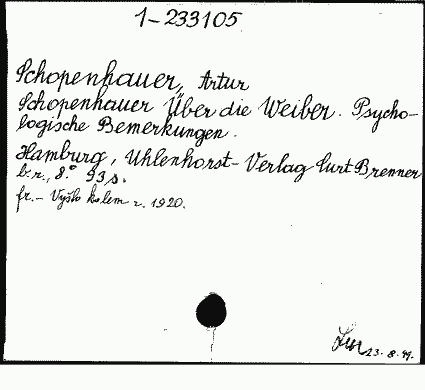 1-233105
Schopenhauer, Artur
Schopenhauer Über die Weiber. Psycho-
logische Bemerkungen.
Hamburg, Uhlenhorst-Verlag Curt Brenner
b.r., 8.° 93 s.
fr. - Vyšlo kolem r. 1920.
23.8.49.